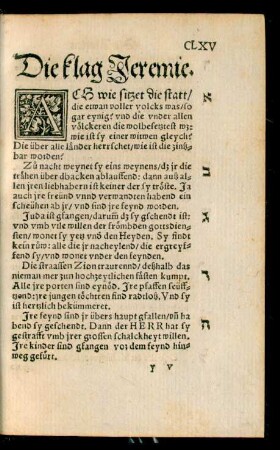 CLXV
Die klag Jeremie.
ACh wie sitzet die statt/
die etwan voller volcks was/so
gar eynig? vnd die vnder allen
völckeren die volbesetzest wz;
wie ist sy einer witwen gleych?
Die über alle länder herrschet/ wie ist die zinß⸗
bar worden?
Zů nacht weynet sy eins weynens/ dz jr die
trähen über dbacken ablauffend: dann auß al⸗
len jren liebhabern ist keiner der sy tröste. Ja
auch jre freünd vnnd verwandten habend ein
scheühen ab jr/ vnd sind jre feynd worden.
Juda ist gfangen/ darumb dz sy gschendt ist:
vnd vmb vile willen der frömbden gottsdien⸗
sten/ wonet sy yetz vnd den Heyden. Sy findt
kein růw: alle die jr nacheylend/ die ergreyf⸗
fend sy/ vnnd wonet vnder den feynden.
Die straassen Zion traurennd/ deßhalb das
nieman mer zun hochzeytlichen fästen kumpt.
Alle jre porten sind eynöd. Jre pfaffen seüff⸗
tzend: jre jungen töchteren sind radtloß. Vnd sy
ist hertzlich bekümmeret.
Jre feynd sind jr übers haupt gfallen/ vnd ha⸗
bend sy geschendt. Dann der HERR hat sy
gestrafft vmb jrer grossen schalckheyt willen.
Jre kinder sind gfangen vor dem feynd hin⸗
weg gefürt.
y v
א
ב
ג
ד
ה